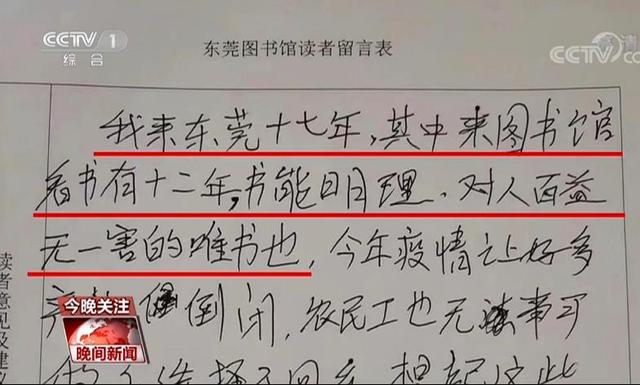 CCTV 1
综合
CCTV
东莞图书馆读者留言表
我来东莞十七年,其中来图书馆
看书有十二年,书能明理、对人百益
无一害的唯书也,今年疫情让好多
倒闭,农民工也无事可
读者意见及建
今晚关注
晚间新闻